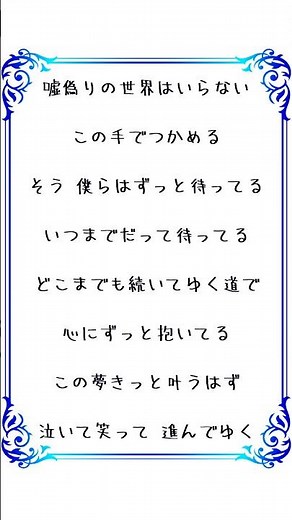 嘘偽りの世界はいらない
この手でつかめる
そう 僕らはずっと待ってる
いつまでだって待ってる
どこまでも続いてゆく道で
心にずっと抱いてる
この夢きっと叶うはず
泣いて笑って 進んでゆく